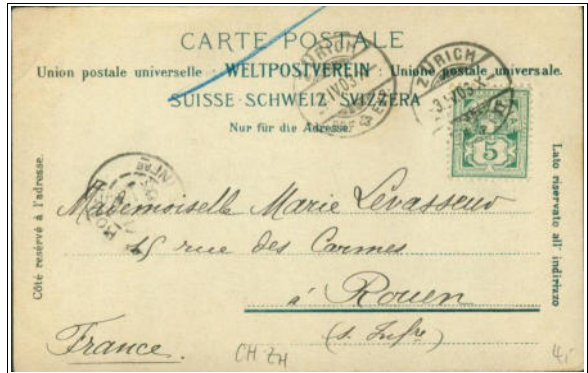 CARTE POSTALE
Union postale universelle · WELTPOSTVEREIN · Unione postale universale.
SUISSE · SCHWEIZ · SVIZZERA
Nur für die Adresse.
ZÜRICH
IV.03
ZÜRICH
IV.03
5
Côté resérvé à l'adresse.
Lato riservato all' indirizzo
ROUEN
Mademoiselle Marie Levasseur
45 rue des Carmes
à Rouen
(S. Infre)
France.
CH ZH